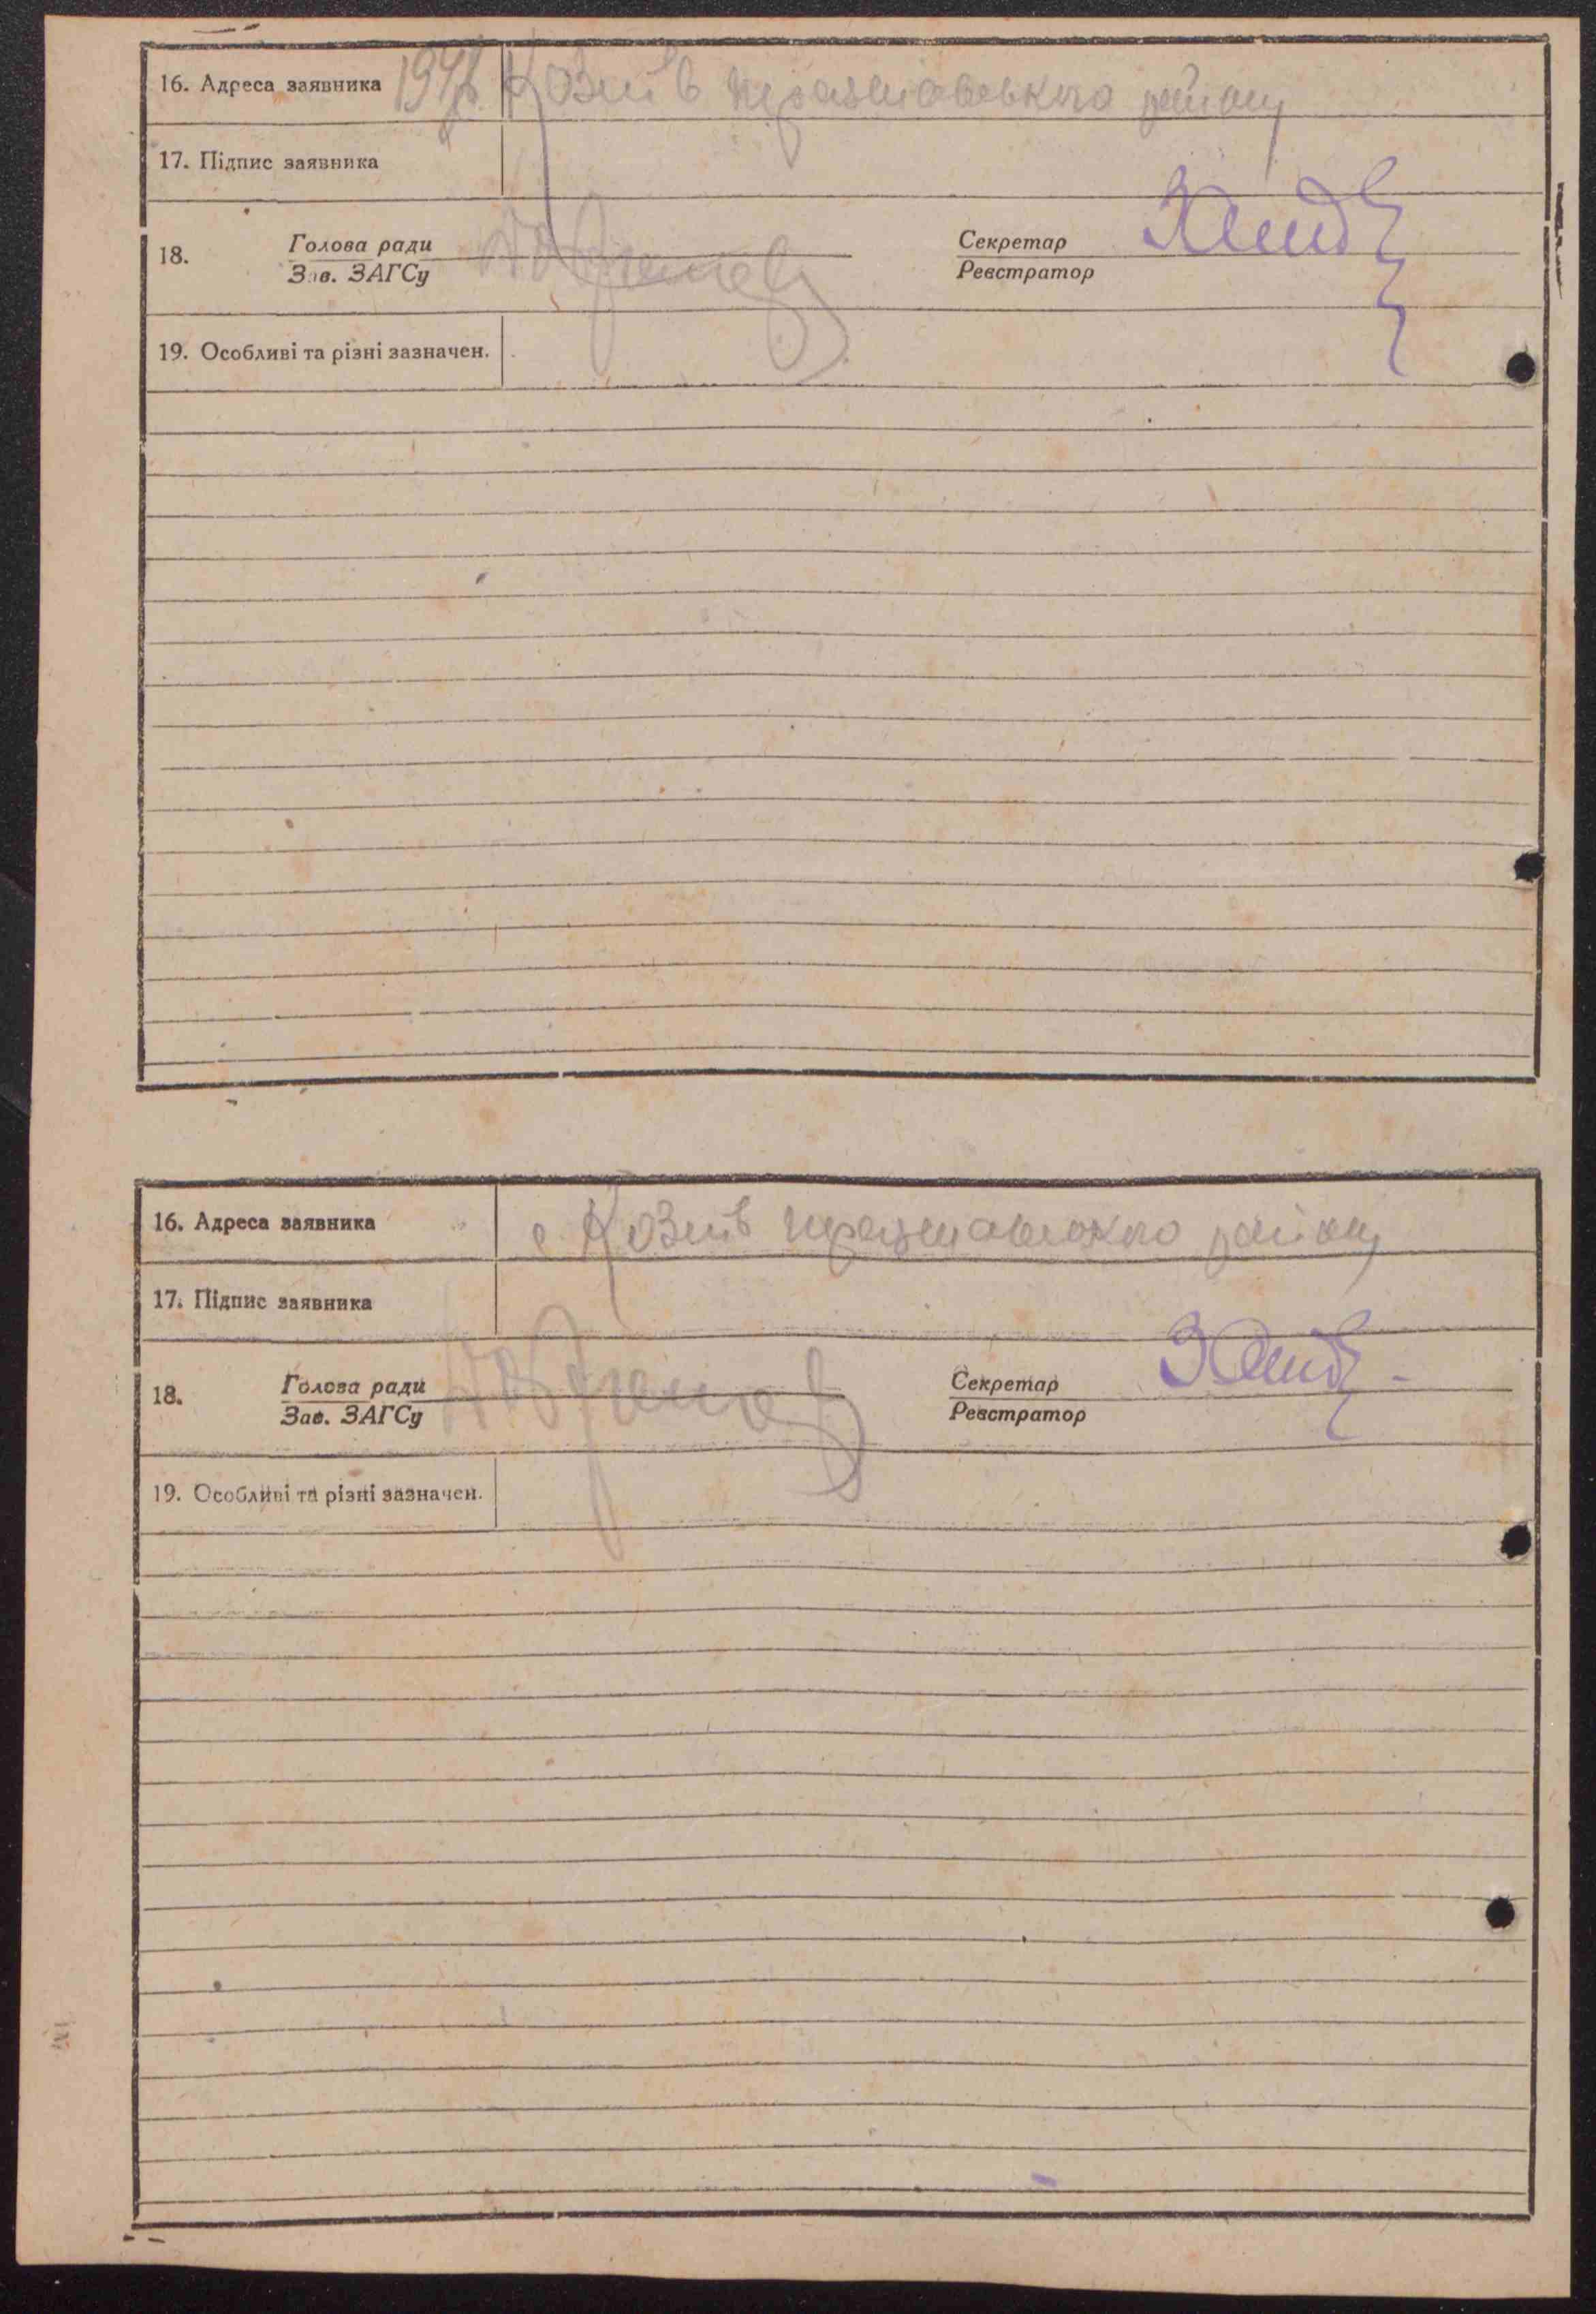 16. Адреса заявника Козиїв Краснокутського району
17. Підпис заявника
18. Голова ради Секретар
Зав. ЗАГСу Реєстратор
19. Особливі та різні зазначен.
16. Адреса заявника с Козиїв Краснокутського району
17. Підпис заявника
18. Голова ради Секретар
Зав. ЗАГСу Реєстратор
19. Особливі та різні зазначен.